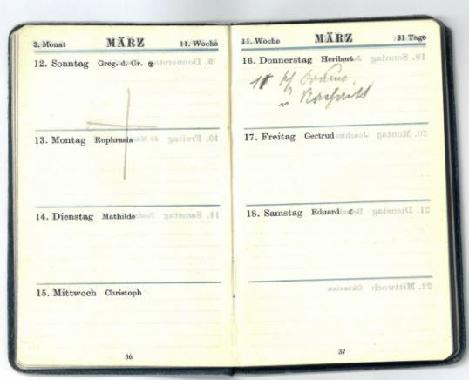 3. Monat MÄRZ 11. Woche
12. Sonntag Greg. d. Gr.
13. Montag Euphrasia
14. Dienstag Mathilde
15. Mittwoch Christoph
36
11. Woche MÄRZ 31 Tage
16. Donnerstag Heribert
11
17. Freitag Gertrud
18. Samstag Eduard
37